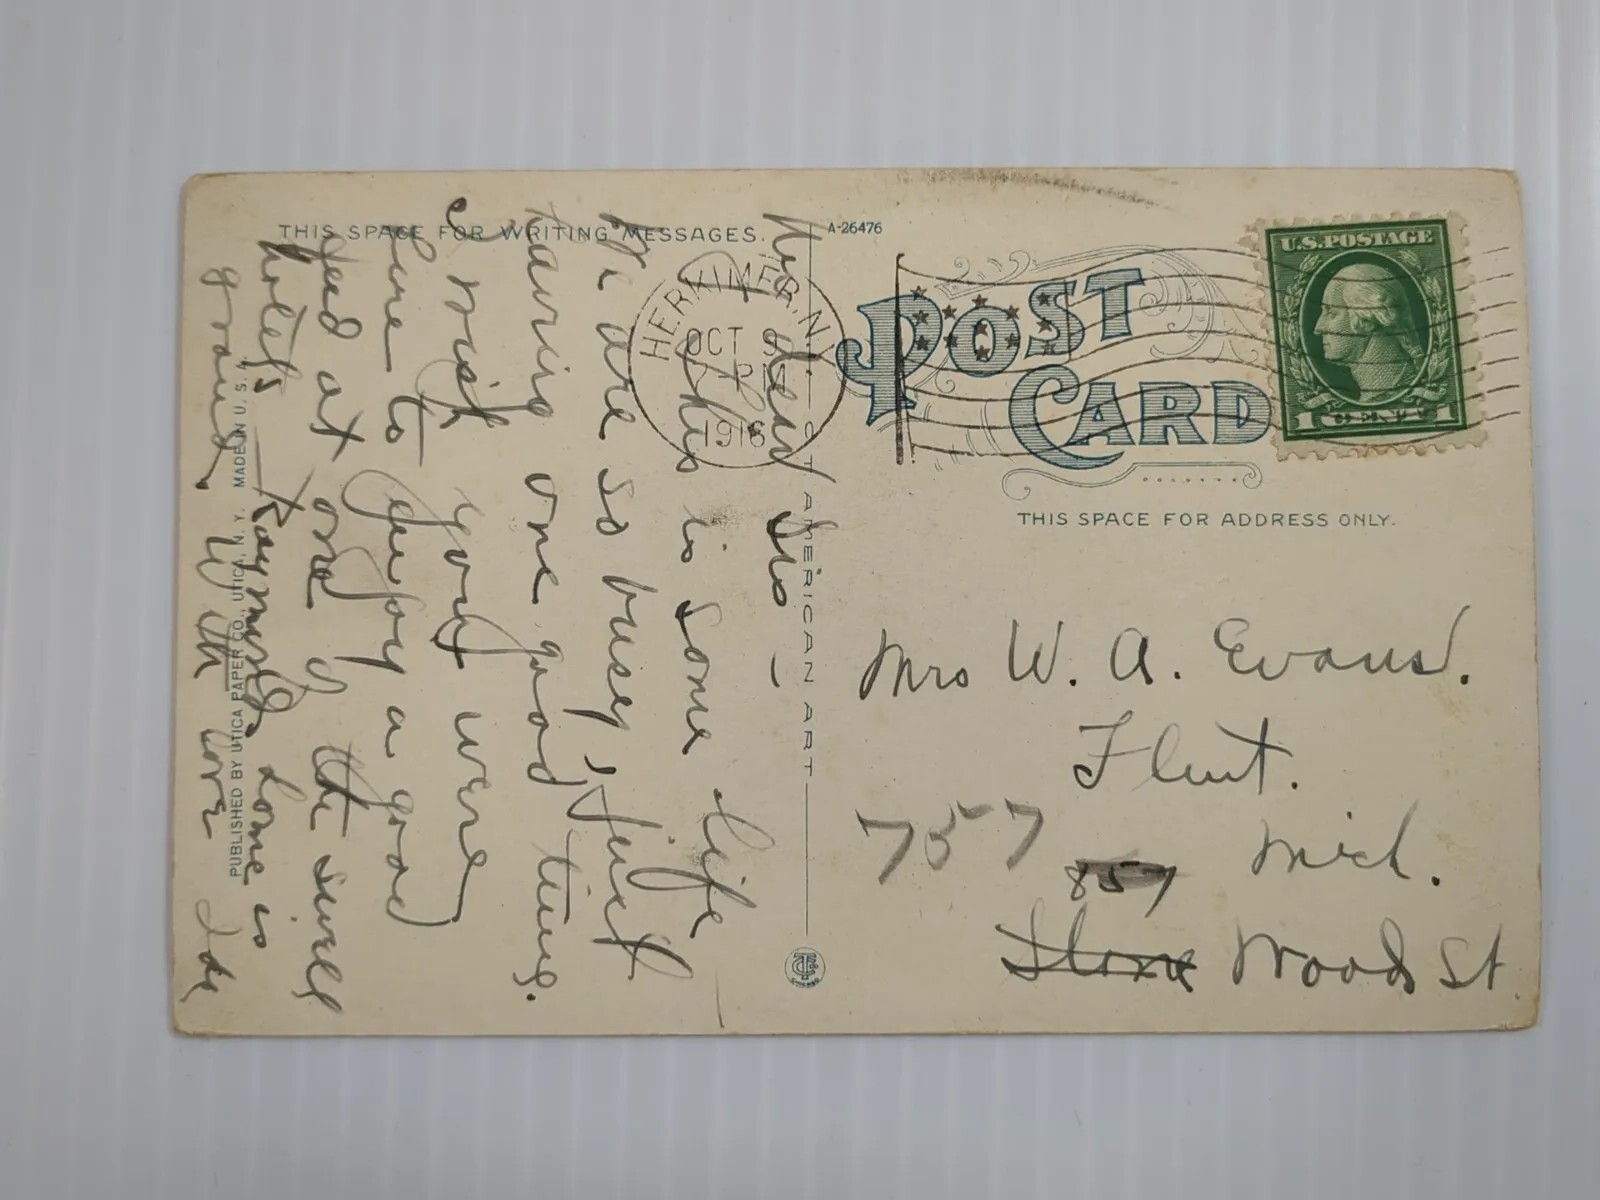 THIS SPACE FOR WRITING MESSAGES.
A-26476
POST
CARD
U.S. POSTAGE
1 CENT 1
HERKIMER, N.Y.
OCT 9
PM
1916
THIS SPACE FOR ADDRESS ONLY.
C.T. AMERICAN ART
PUBLISHED BY UTICA PAPER CO., UTICA, N.Y. MADE IN U.S.A.
My dear Sis –
This is some life
We are so busy, just
having one good time.
I wish you were
here to enjoy a good
feed at one of the swell
hotels Raymond's home is
grand. With love Ida
Mrs W. A. Evans.
Flint.
Mich.
757
857
Stone Wood St